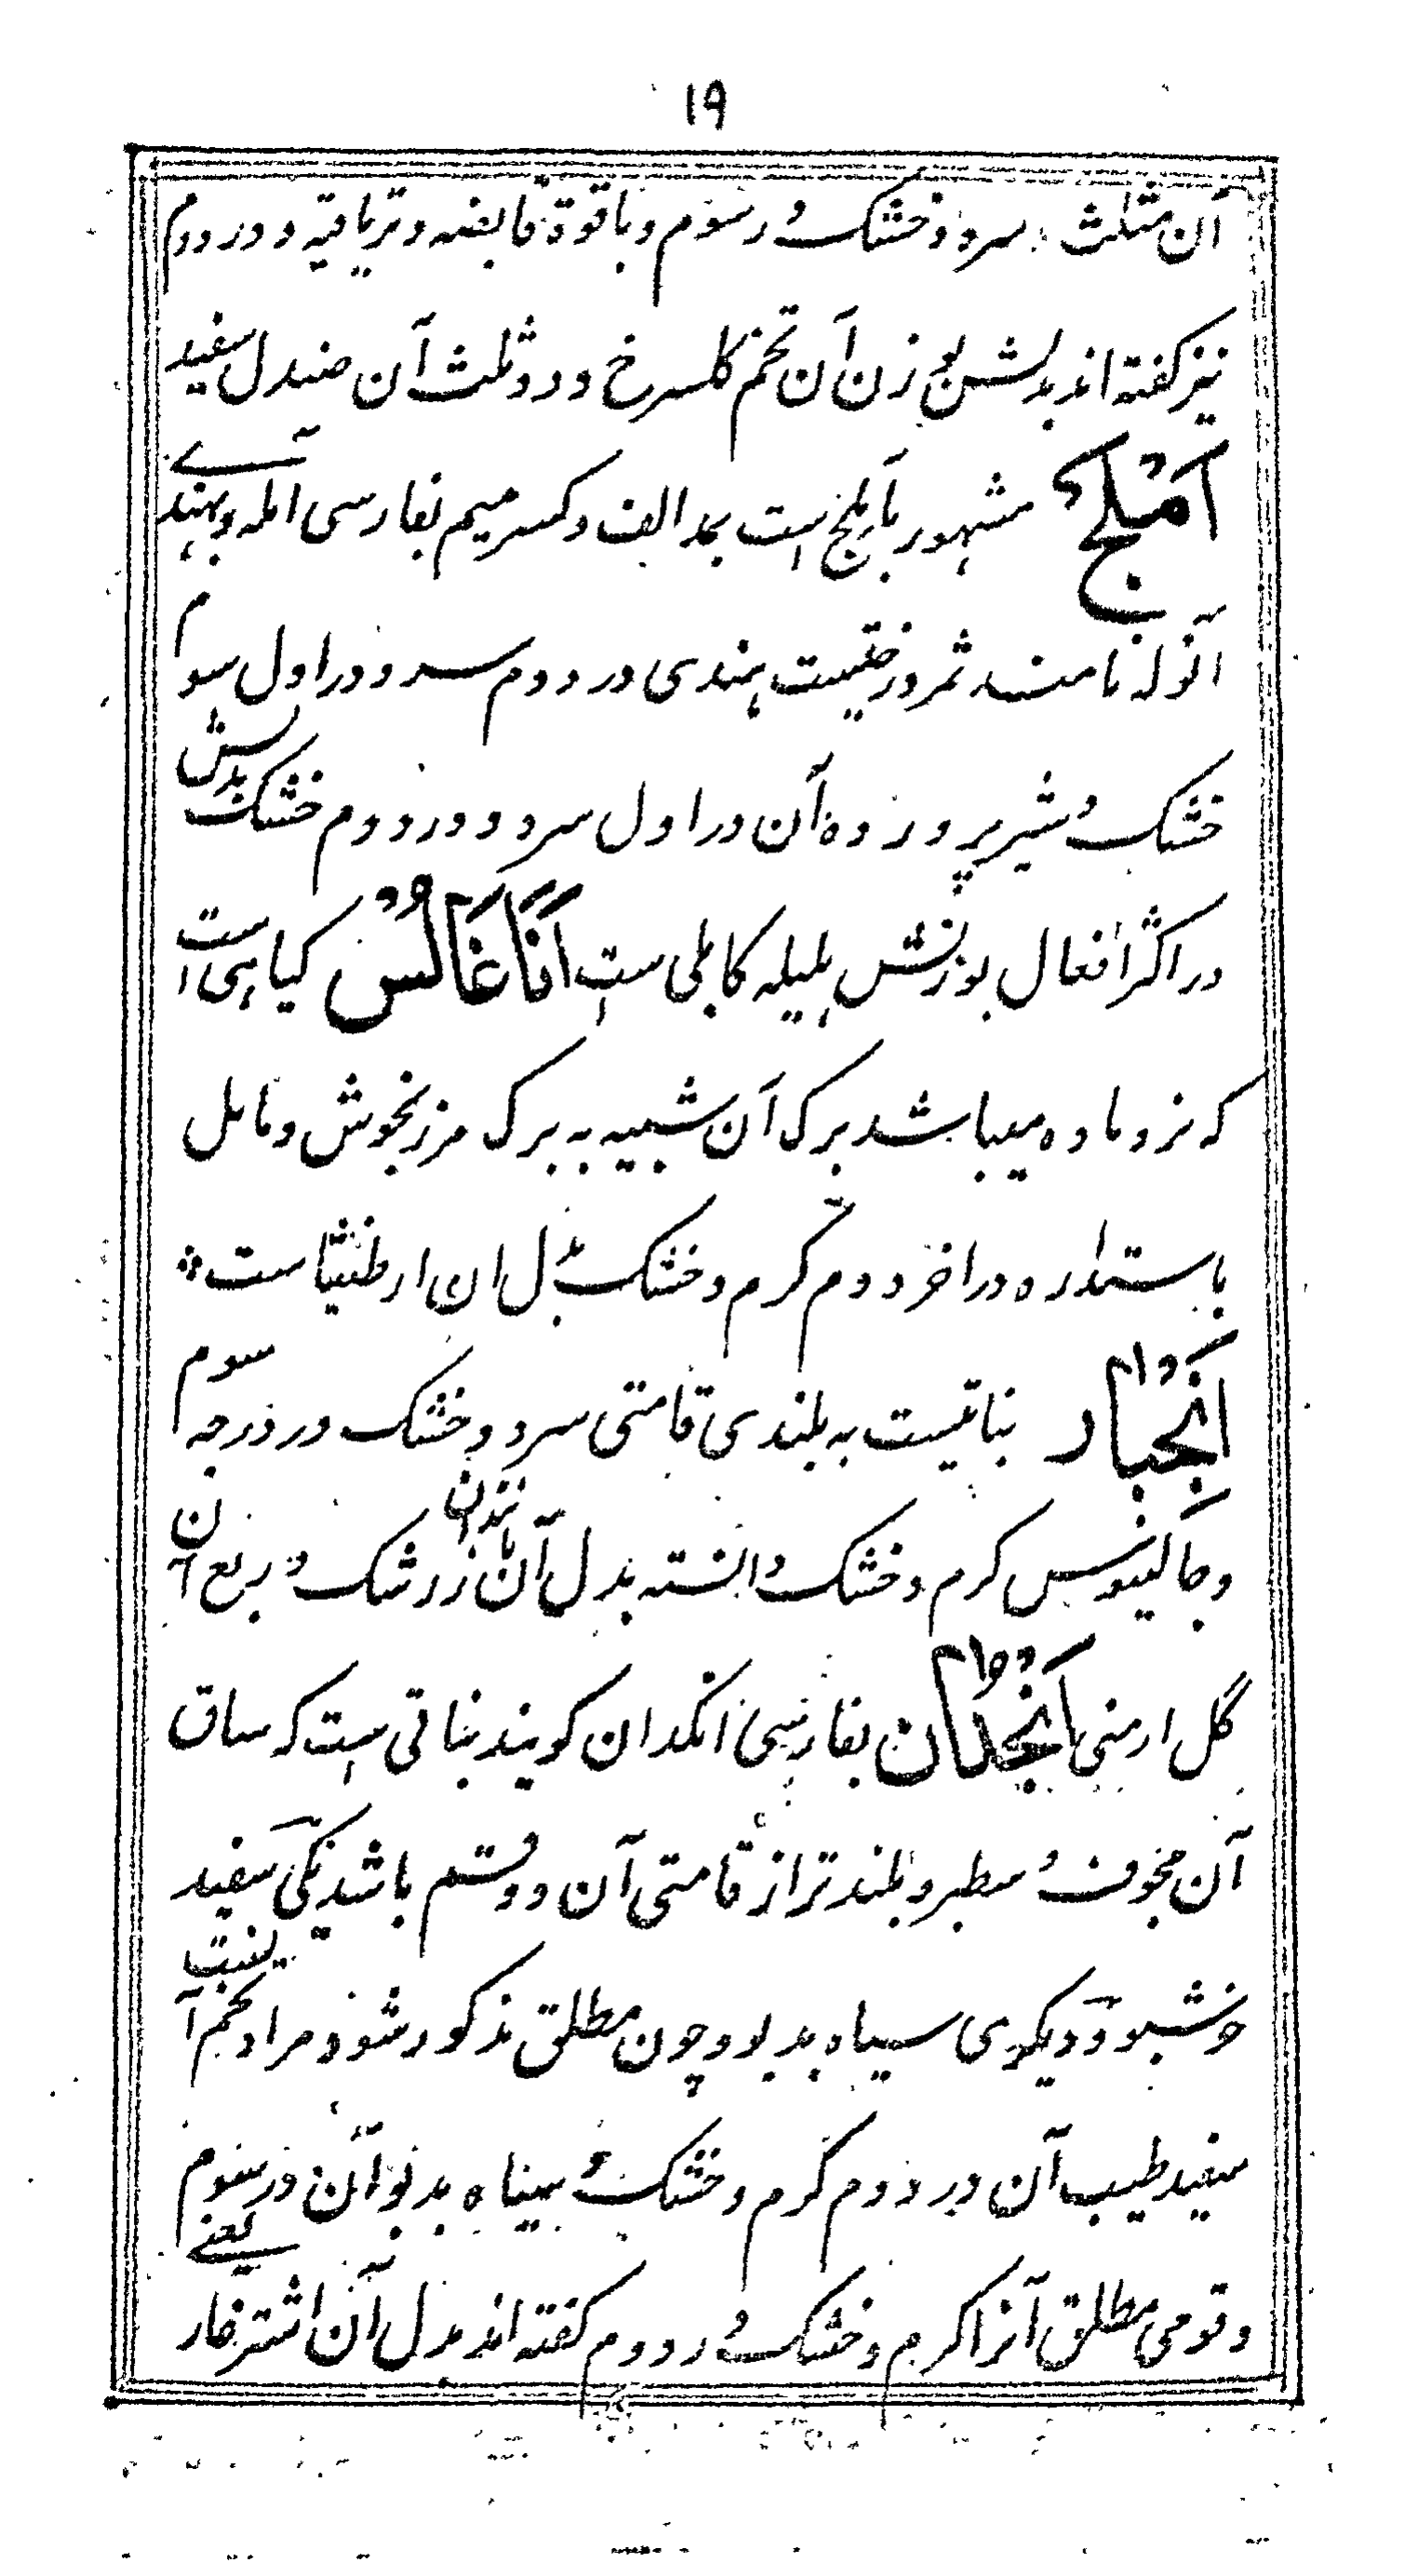 ۱۹
آن مثلث سرد و خشک در سوم و با قوة قابضه و تریاقیه و در دوم
نیز گفته اند بدلش بوزن آن تخم گلسرخ و دو ثلث آن صندل سفید
آملج مشهور بآملج است بمد الف و کسر میم بفارسی امله و بهندے
آنوله نامند ثمر درختیست هندی در دوم سرد و در اول سوم
خشک و شیر پروردهٔ آن در اول سرد و در دوم خشک بدلش
در اکثر افعال بوزنش هلیله کابلی ست اَنَاغَالُسْ گیاهی است
که نر و ماده میباشد برک آن شبیه به برک مرزنجوش و مایل
باستداره در اخر دوم کرم و خشک بدل ان ارطنیثا ست
اَنْجُبار نباتیست به بلندی قامتی سرد و خشک در درجه سوم
و جالینوس کرم و خشک دانسته بدل آن بوزن آن زرشک و ربع آن
گل ارمنی اَنْجُدان بفارسی انکدان کویند نباتی است که ساق
آن مجوف و سطبر و بلندتر از قامتی آن دو قسم باشد یکی سفید
خوشبو و دیکری سیاه بدبو و چون مطلق مذکور شود مراد تخم آنست
سفید طیب آن در دوم گرم و خشک و سیاه بدبو آن در سوم یعنے
و قومی مطلق آنرا کرم و خشک در دوم کفته اند بدل آن اشترغار